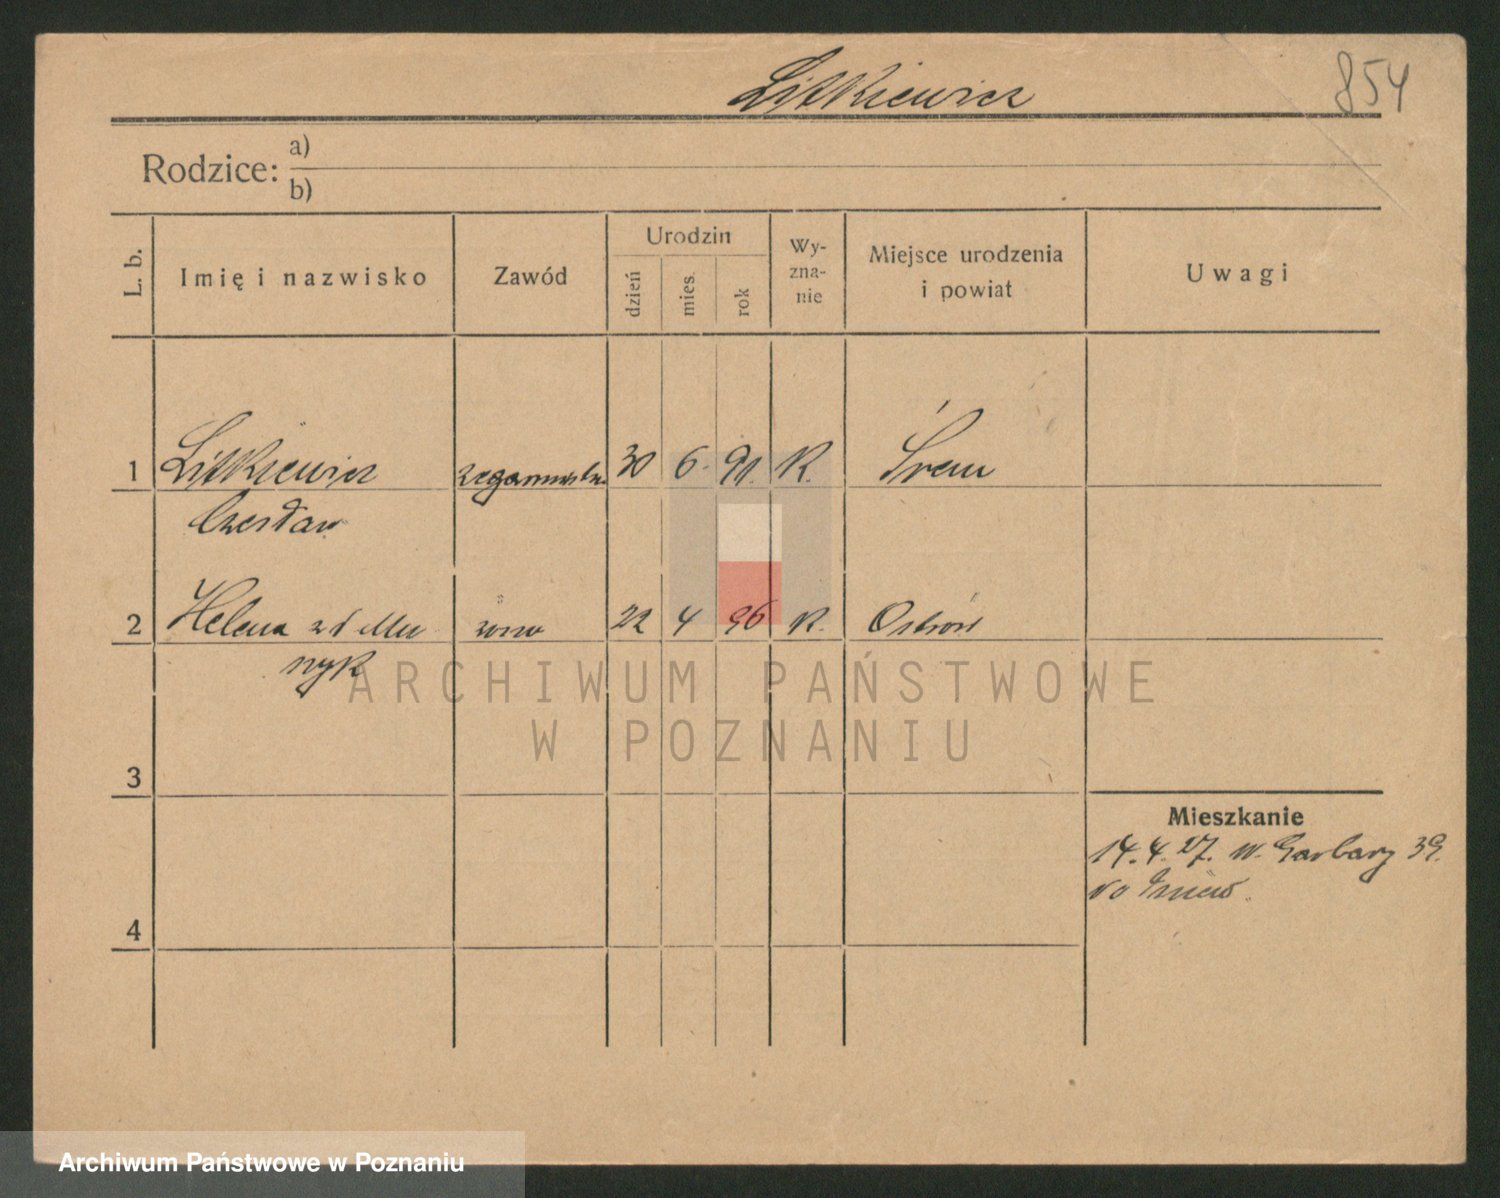 Litkiewicz
854
Rodzice: a)
b)
L. b.
Imię i nazwisko
Zawód
Urodzin
dzień
mies.
rok
Wy-
zna-
nie
Miejsce urodzenia
i powiat
Uwagi
1 Litkiewicz 30 6. 91. K. Śrem
Czesław
2 Helena zd Mu żona 22 4 96 K. Ostrów
szyk
3
4
Mieszkanie
14.4.27. w. Garbary 39.
do Gniew
ARCHIWUM PAŃSTWOWE
W POZNANIU
Archiwum Państwowe w Poznaniu